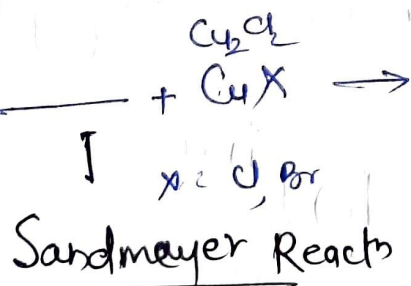 Cu₂Cl₂
_____ + CuX →
I
X = Cl, Br
Sandmeyer Reactn